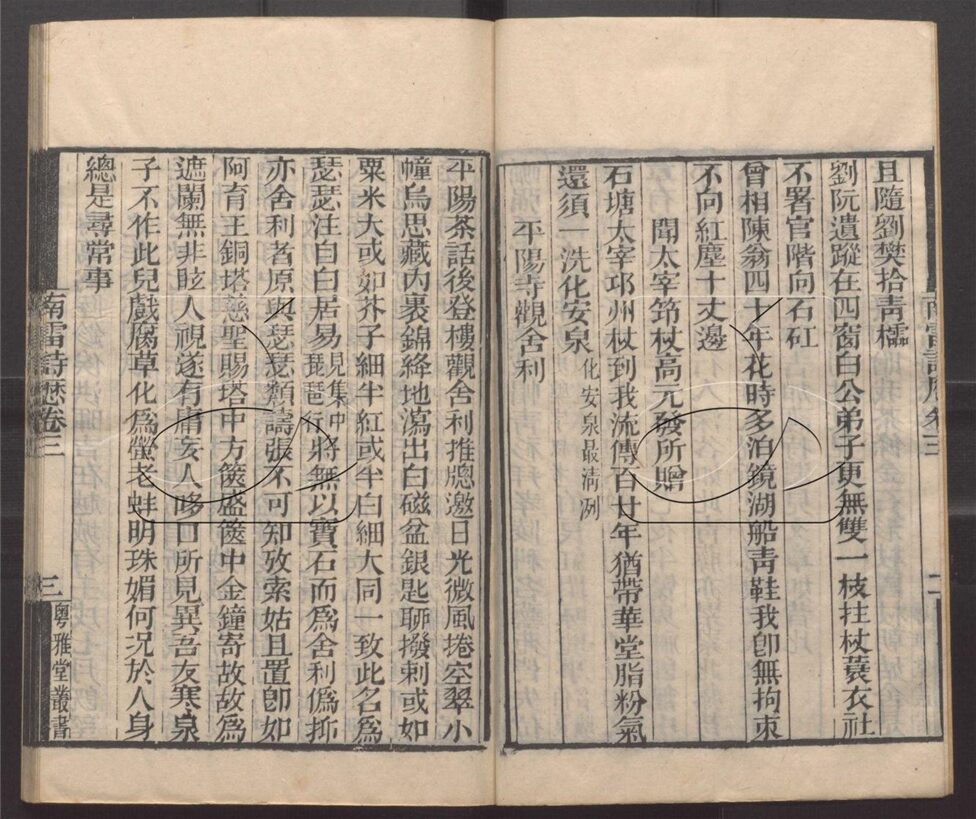 且隨劉樊拾青櫺
劉阮遺蹤在四窗白公弟子更無雙一枝拄杖蓑衣社
不署官階向石矼
曾相陳翁四十年花時多泊鏡湖船青鞋我卽無拘束
不向紅塵十丈邊
聞太宰筇杖高元發所贈
石塘太宰邛州杖到我流傳百廿年猶帶華堂脂粉氣
還須一洗化安泉化安泉最清冽
平陽寺觀舍利
二
平陽茶話後登樓觀舍利推窻邀日光微風捲空翠小
幢烏思藏內裹錦絳地瀉出白磁盆銀匙聊撥剌或如
粟米大或如芥子細半紅或半白細大同一致此名爲
瑟瑟注自白居易見集中琵琶行將無以寶石而爲舍利僞抑
亦舍利者原與瑟瑟類譸張不可知攷索姑且置卽如
阿育王銅塔慈聖賜塔中方篋盛篋中金鐘寄故故爲
遮闌無非眩人視遂有庸妄人哆口所見異吾友寒泉
子不作此兒戲腐草化爲螢老蚌明珠媚何况於人身
總是尋常事
南雷詩歷卷三
三
粤雅堂叢書